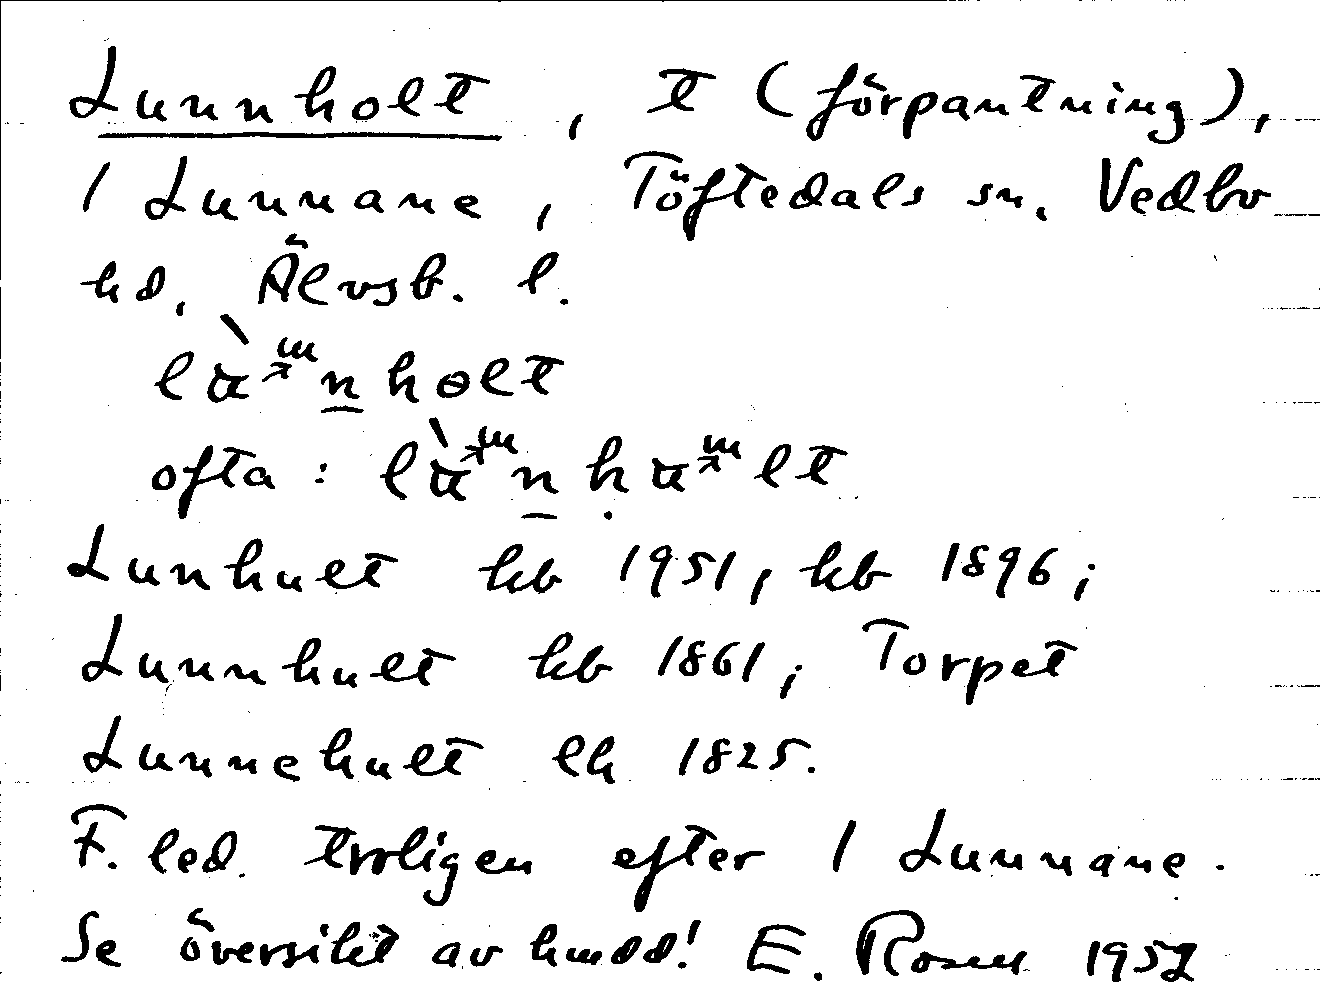 Lunnholt, t (förpantning),
1 Lunnane, Töftedals sn, Vedbo
hd, Älvsb. l.
ofta:
Lunhult kb 1951, kb 1896;
Lunnhult kb 1861; Torpet
Lunnehult lh 1825.
F. led. troligen efter 1 Lunnane.
Se översikt av hmdd! E. Rosell 1952